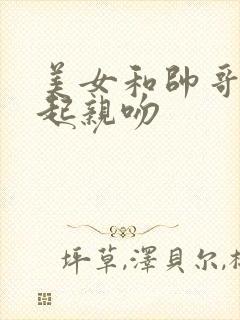 美女和帥哥
起親吻
坪草,澤貝尔,